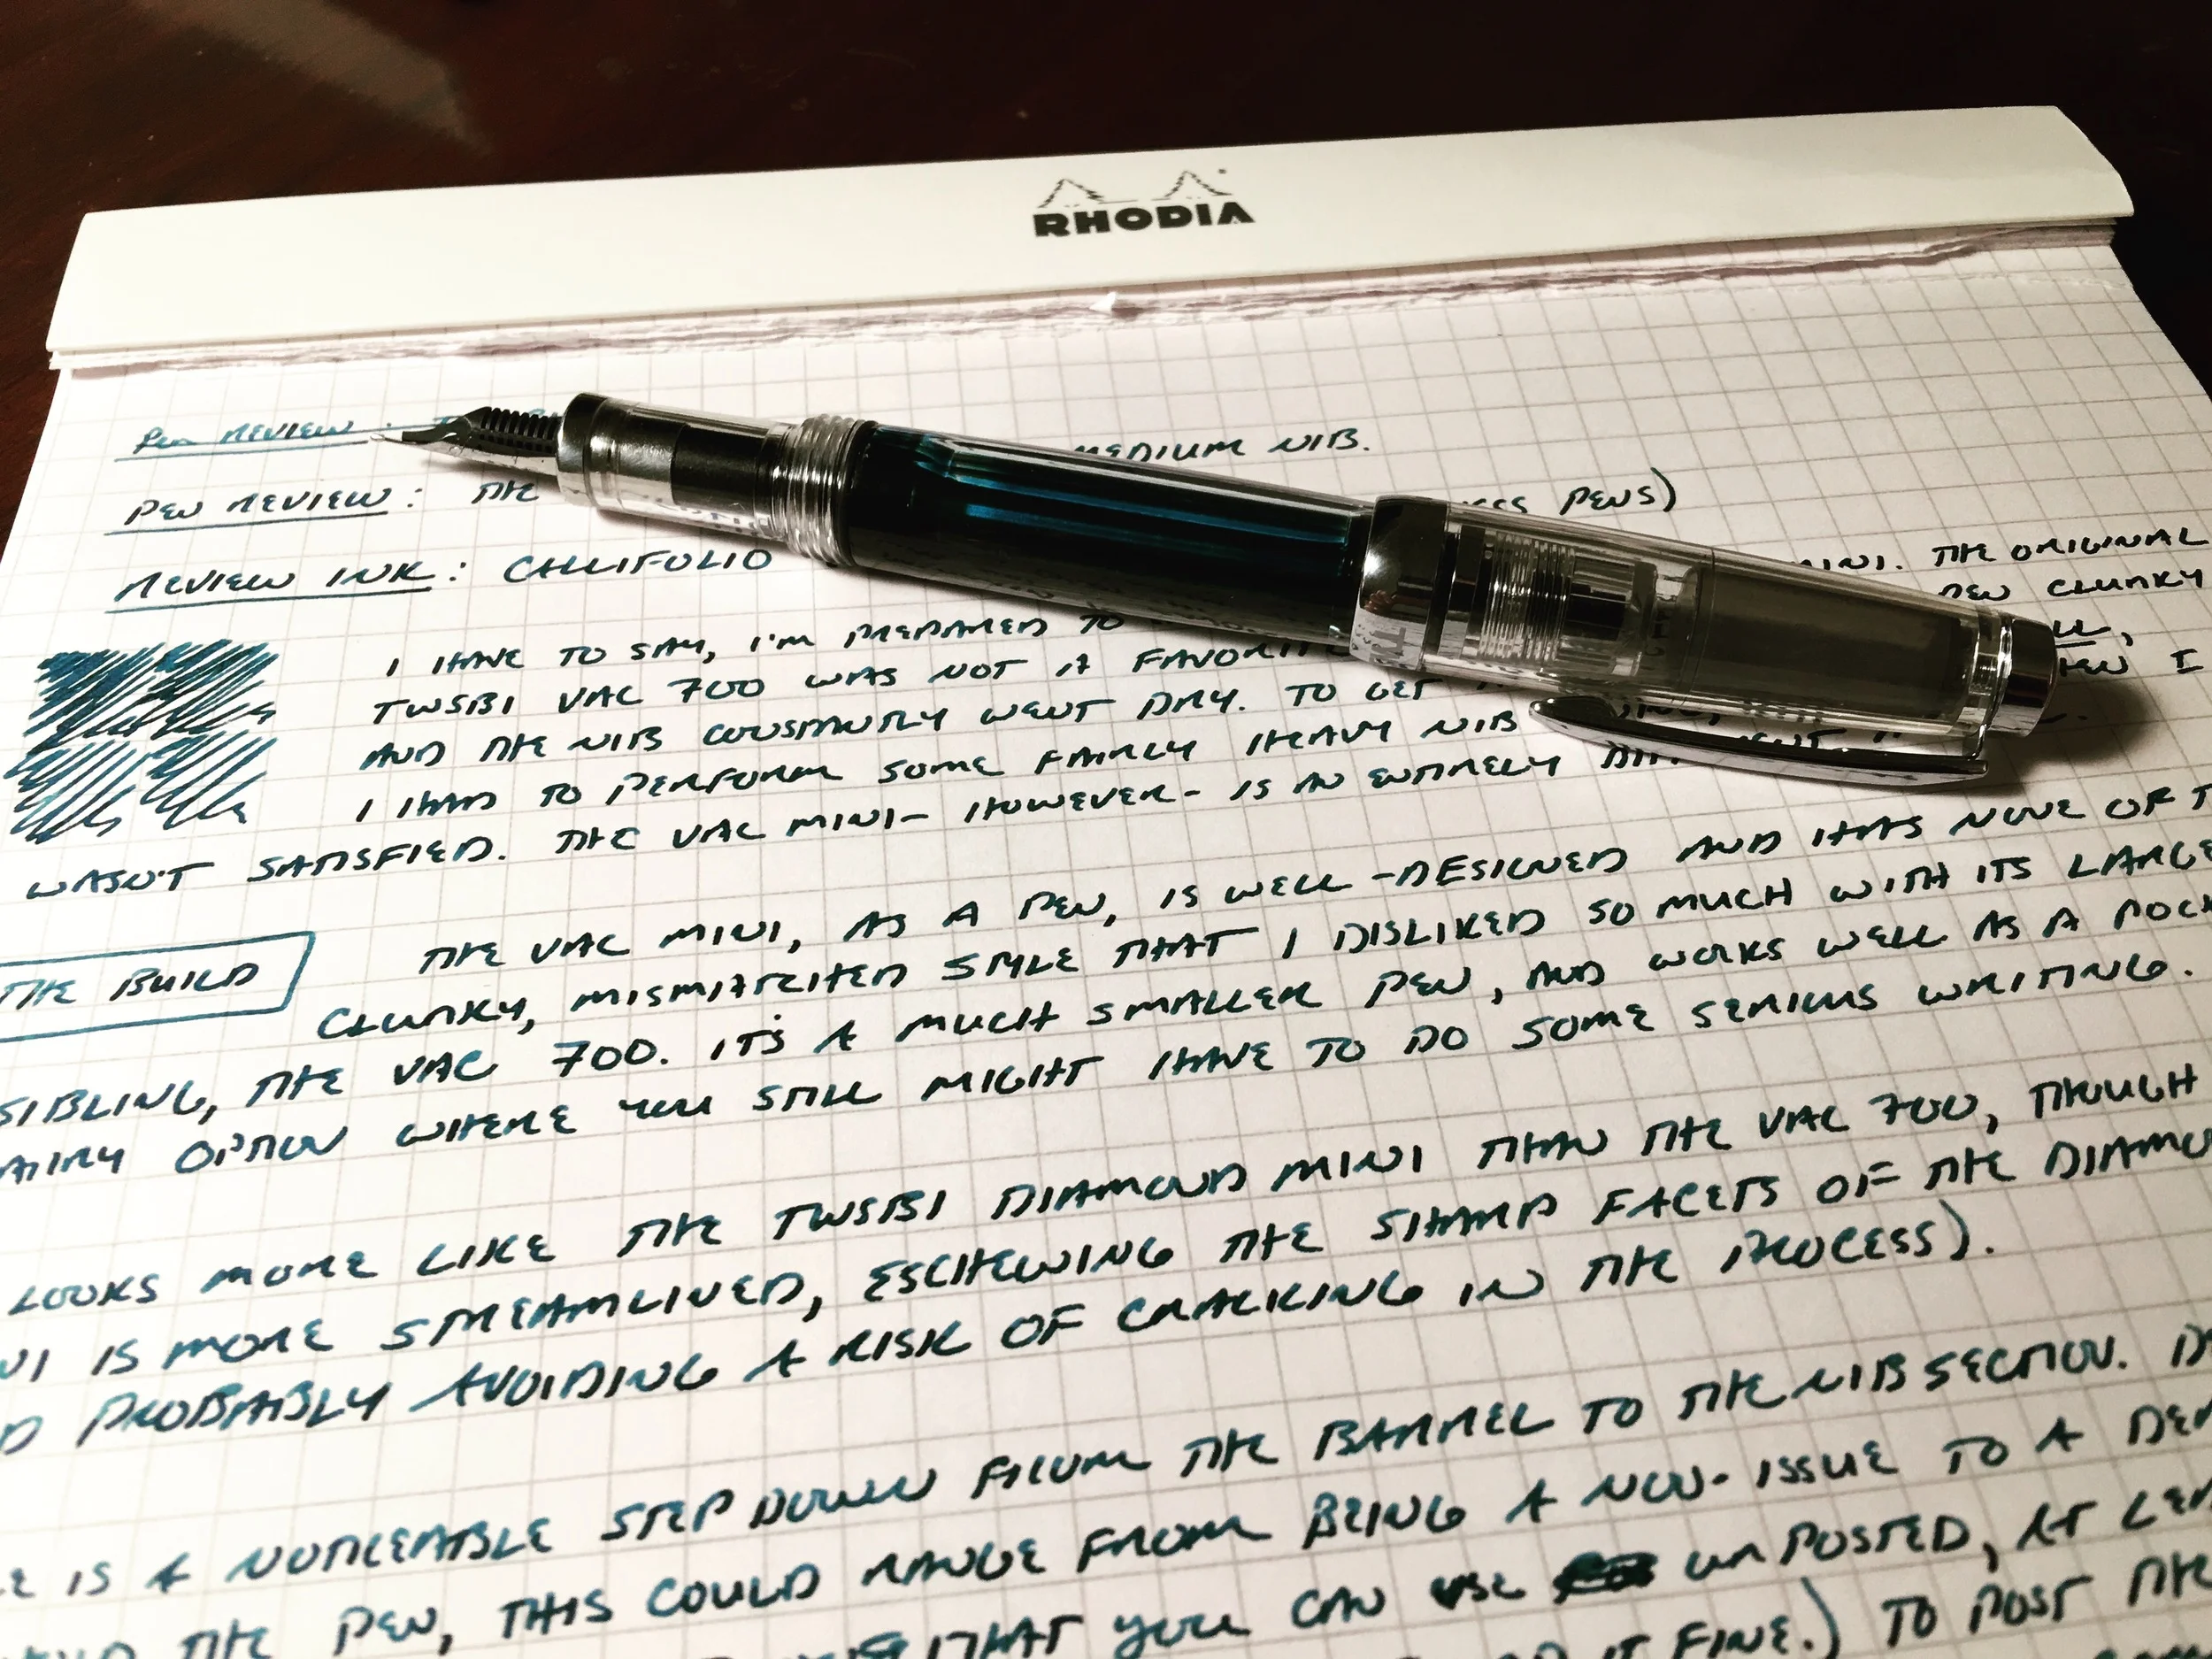 RHODIA
PEN REVIEW:
MEDIUM NIB.
PEN REVIEW: THE PENS)
REVIEW INK: CALLIFOLIO
I HAVE TO SAY, I'M PREPARED TO MINI. THE ORIGINAL
TWSBI VAC 700 WAS NOT A PEN CLUNKY
AND THE NIB CONSTANTLY WENT DRY. TO GET
I HAD TO PERFORM SOME FAIRLY HEAVY NIB I
WASN'T SATISFIED. THE VAC MINI- HOWEVER- IS AN ENTIRELY
THE BUILD
THE VAC MINI, AS A PEN, IS WELL-DESIGNED AND HAS NONE OF
CLUNKY, MISMATCHED STYLE THAT I DISLIKED SO MUCH WITH ITS LARGE
SIBLING, THE VAC 700. IT'S A MUCH SMALLER PEN, AND WORKS WELL AS A
OPTION WHERE YOU STILL MIGHT HAVE TO DO SOME SERIOUS WRITING.
LOOKS MORE LIKE THE TWSBI DIAMOND MINI THAN THE VAC 700, THOUGH
IS MORE STREAMLINED, ESCHEWING THE SHARP FACETS OF THE
PROBABLY AVOIDING A RISK OF CRACKING IN THE PROCESS).
IS A NOTICEABLE STEP DOWN FROM THE BARREL TO THE NIB SECTION.
THE PEN, THIS COULD RANGE FROM BEING A NON-ISSUE TO A
THAT YOU CAN USE UNPOSTED, AT
IT FINE.) TO POST THE